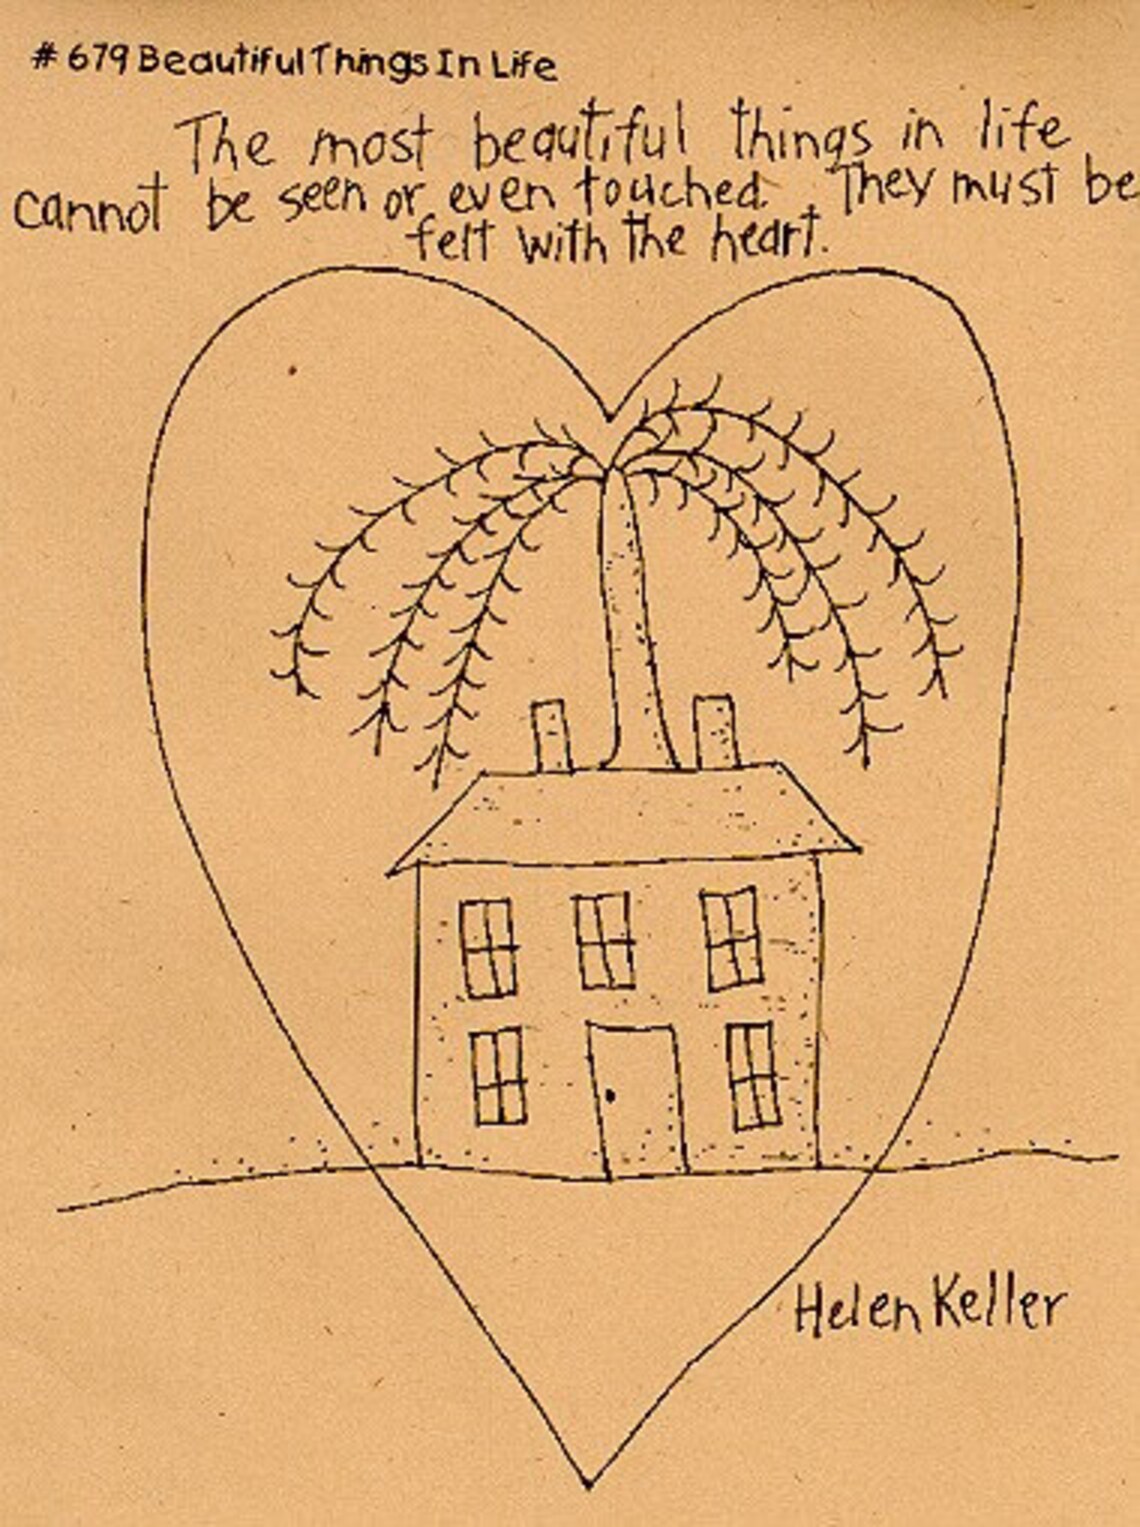 # 679 Beautiful Things In Life
The most beautiful things in life
cannot be seen or even touched. They must be
felt with the heart.
Helen Keller